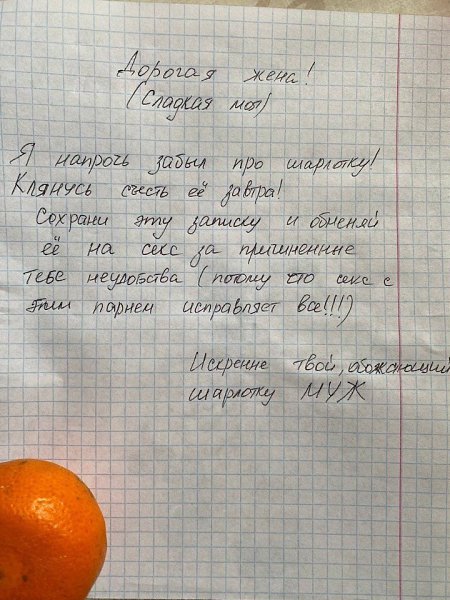 Дорогая жена!
(Сладкая моя)
Я напрочь забыл про шарлотку!
Клянусь съесть её завтра!
Сохрани эту записку и обменяй
её на секс за причиненные
тебе неудобства (потому что секс с
этим парнем исправляет все!!!)
Искренне твой, обожающий
шарлотку МУЖ